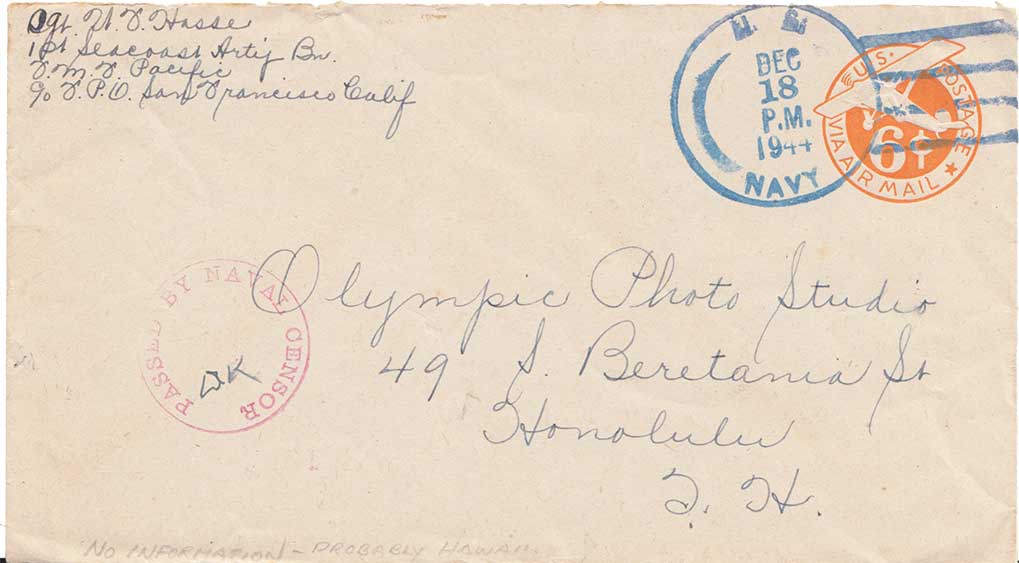 Sgt. W. F. Hasse
1st Seacoast Arty Bn.
F. M. F. Pacific
c/o F. P. O. San Francisco Calif
DEC
18
P.M.
1944
NAVY
U.S. POSTAGE
6¢
VIA AIR MAIL
PASSED BY NAVAL CENSOR
Olympic Photo Studio
49 S. Beretania St
Honolulu
T. H.
NO INFORMATION - PROBABLY HAWAII.